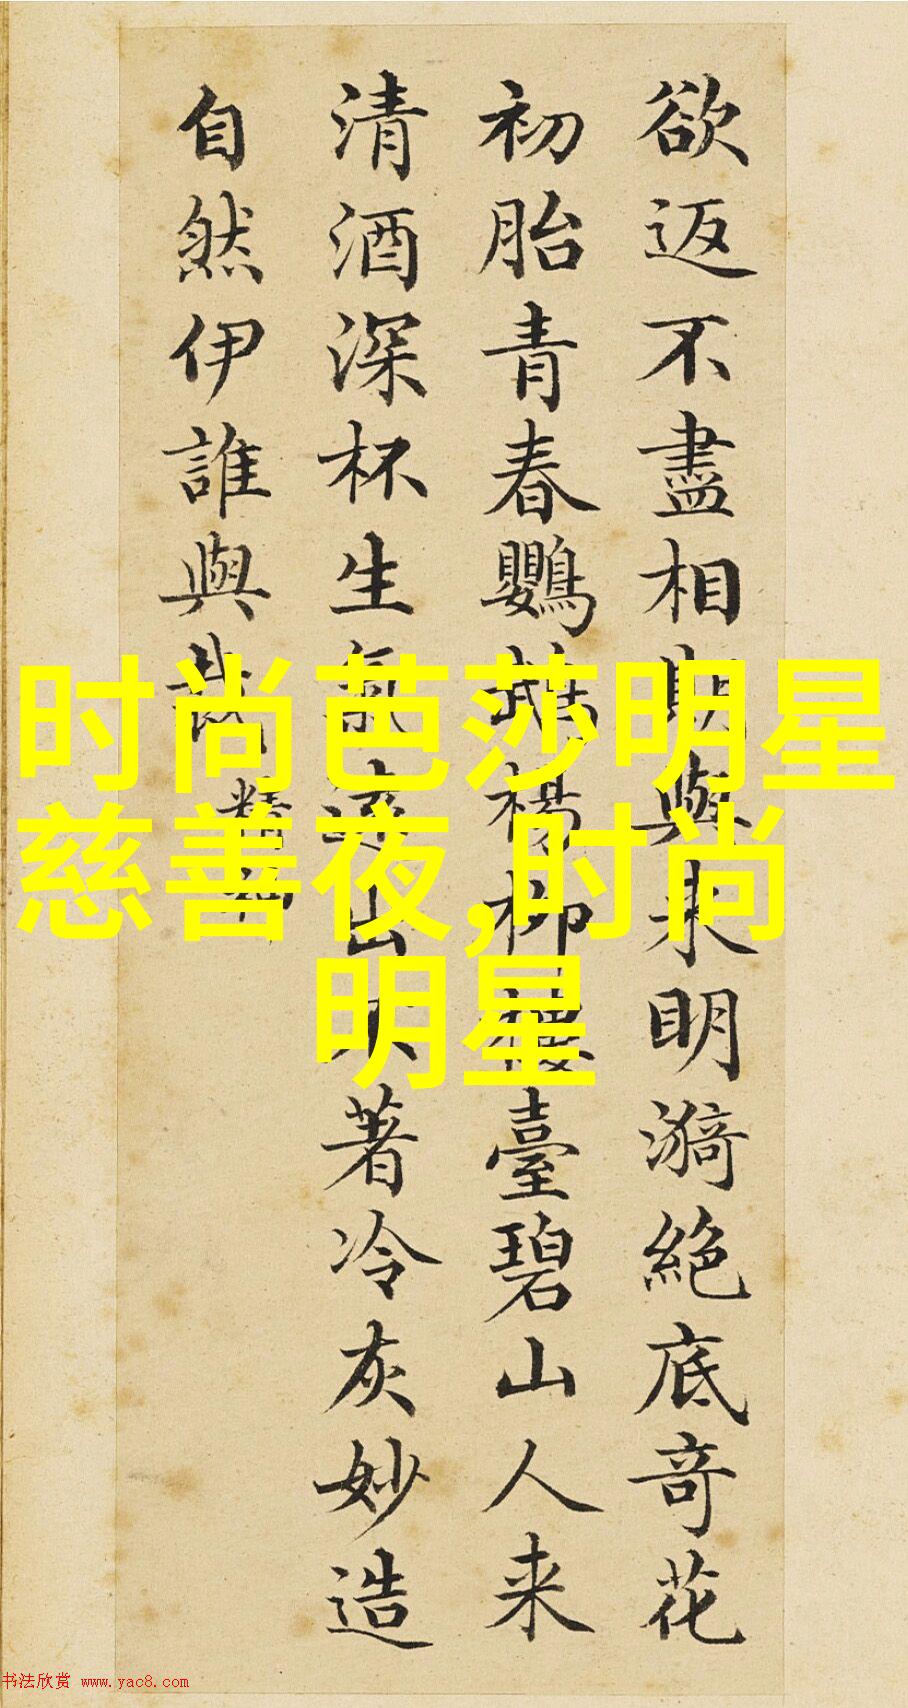 欲返不盡相期與来明漪絕底奇花
初胎青春鸚鵡楊柳樓臺碧山人来
清酒深杯生氣遠出不著冷灰妙造
自然伊誰與裁
精神
时尚芭莎明星
慈善夜,时尚
明星
书法欣赏 www.yac8.com